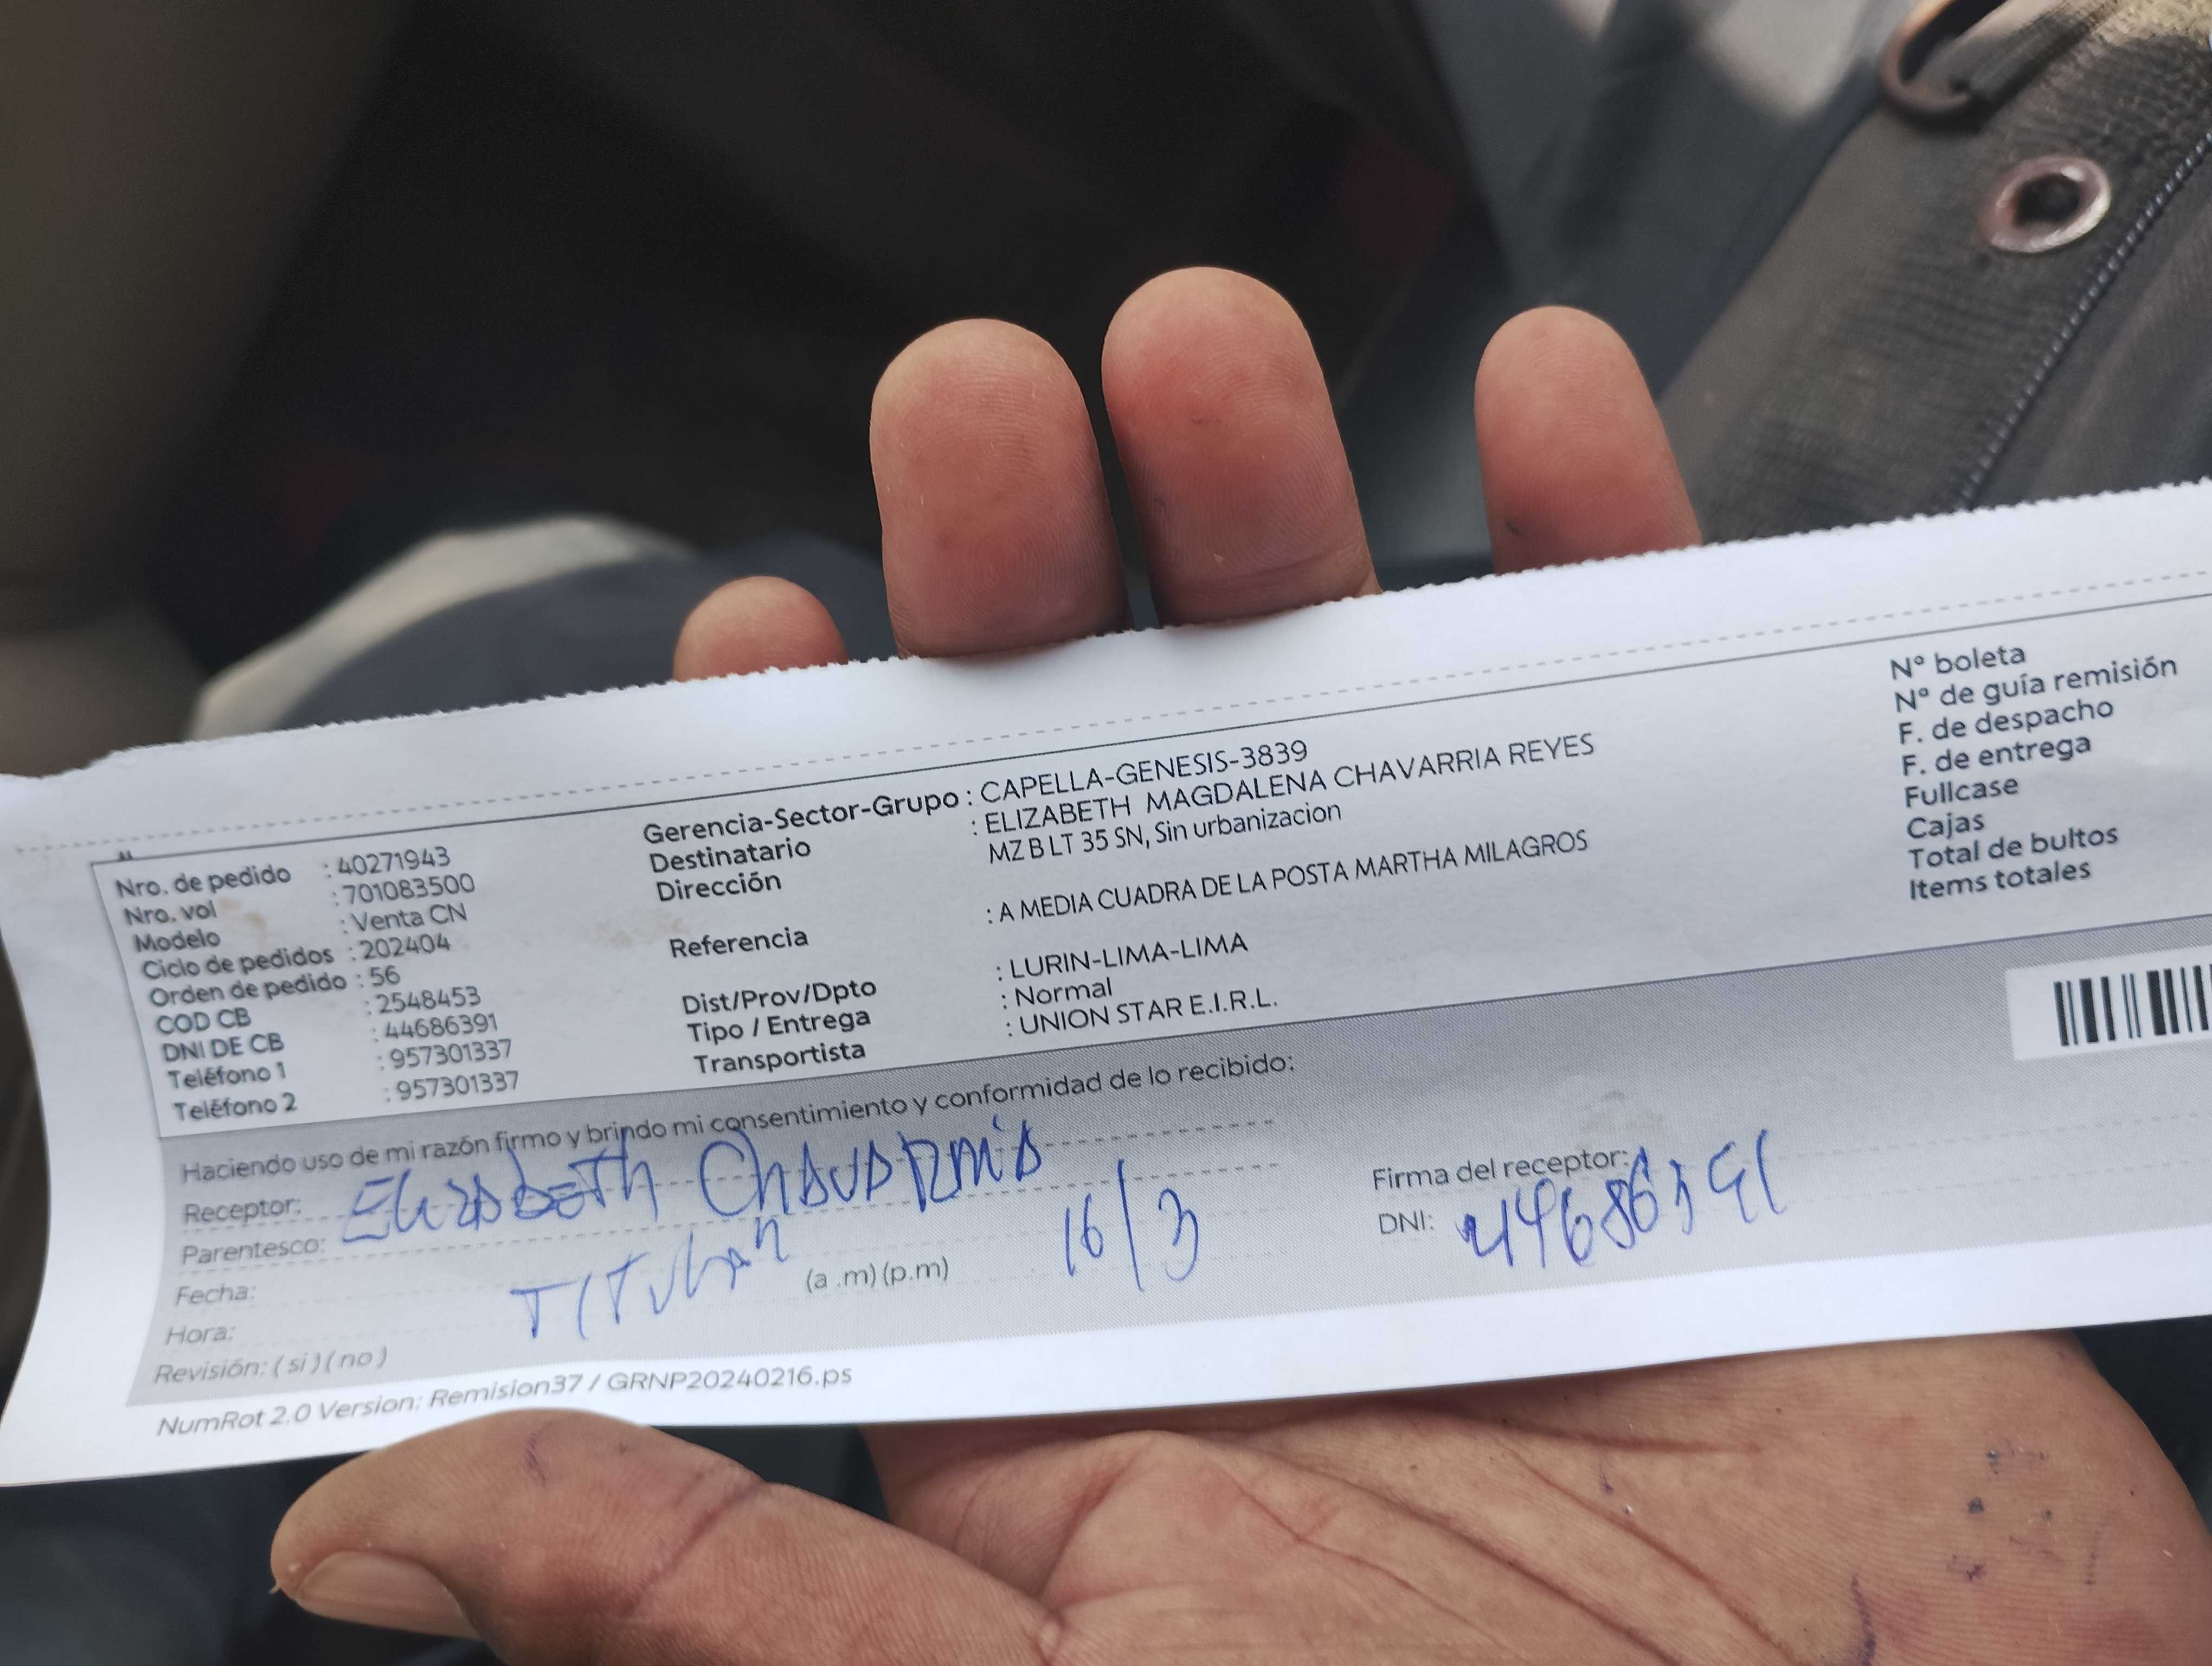 Nro. de pedido : 40271943
Nro. vol : 701083500
Modelo : Venta CN
Ciclo de pedidos : 202404
Orden de pedido : 56
COD CB : 2548453
DNI DE CB : 44686391
Teléfono 1 : 957301337
Teléfono 2 : 957301337
Gerencia-Sector-Grupo : CAPELLA-GENESIS-3839
Destinatario : ELIZABETH MAGDALENA CHAVARRIA REYES
Dirección MZ B LT 35 SN, Sin urbanizacion
Referencia : A MEDIA CUADRA DE LA POSTA MARTHA MILAGROS
Dist/Prov/Dpto : LURIN-LIMA-LIMA
Tipo / Entrega : Normal
Transportista : UNION STAR E.I.R.L.
N° boleta
N° de guía remisión
F. de despacho
F. de entrega
Fullcase
Cajas
Total de bultos
Items totales
Haciendo uso de mi razón firmo y brindo mi consentimiento y conformidad de lo recibido:
Receptor: Elizabeth Chavarria
Parentesco:
Fecha: Titular 16/3
Hora: (a .m) (p.m)
Revisión: ( si ) ( no )
Firma del receptor:
DNI: 44686391
NumRot 2.0 Version: Remision37 / GRNP20240216.ps